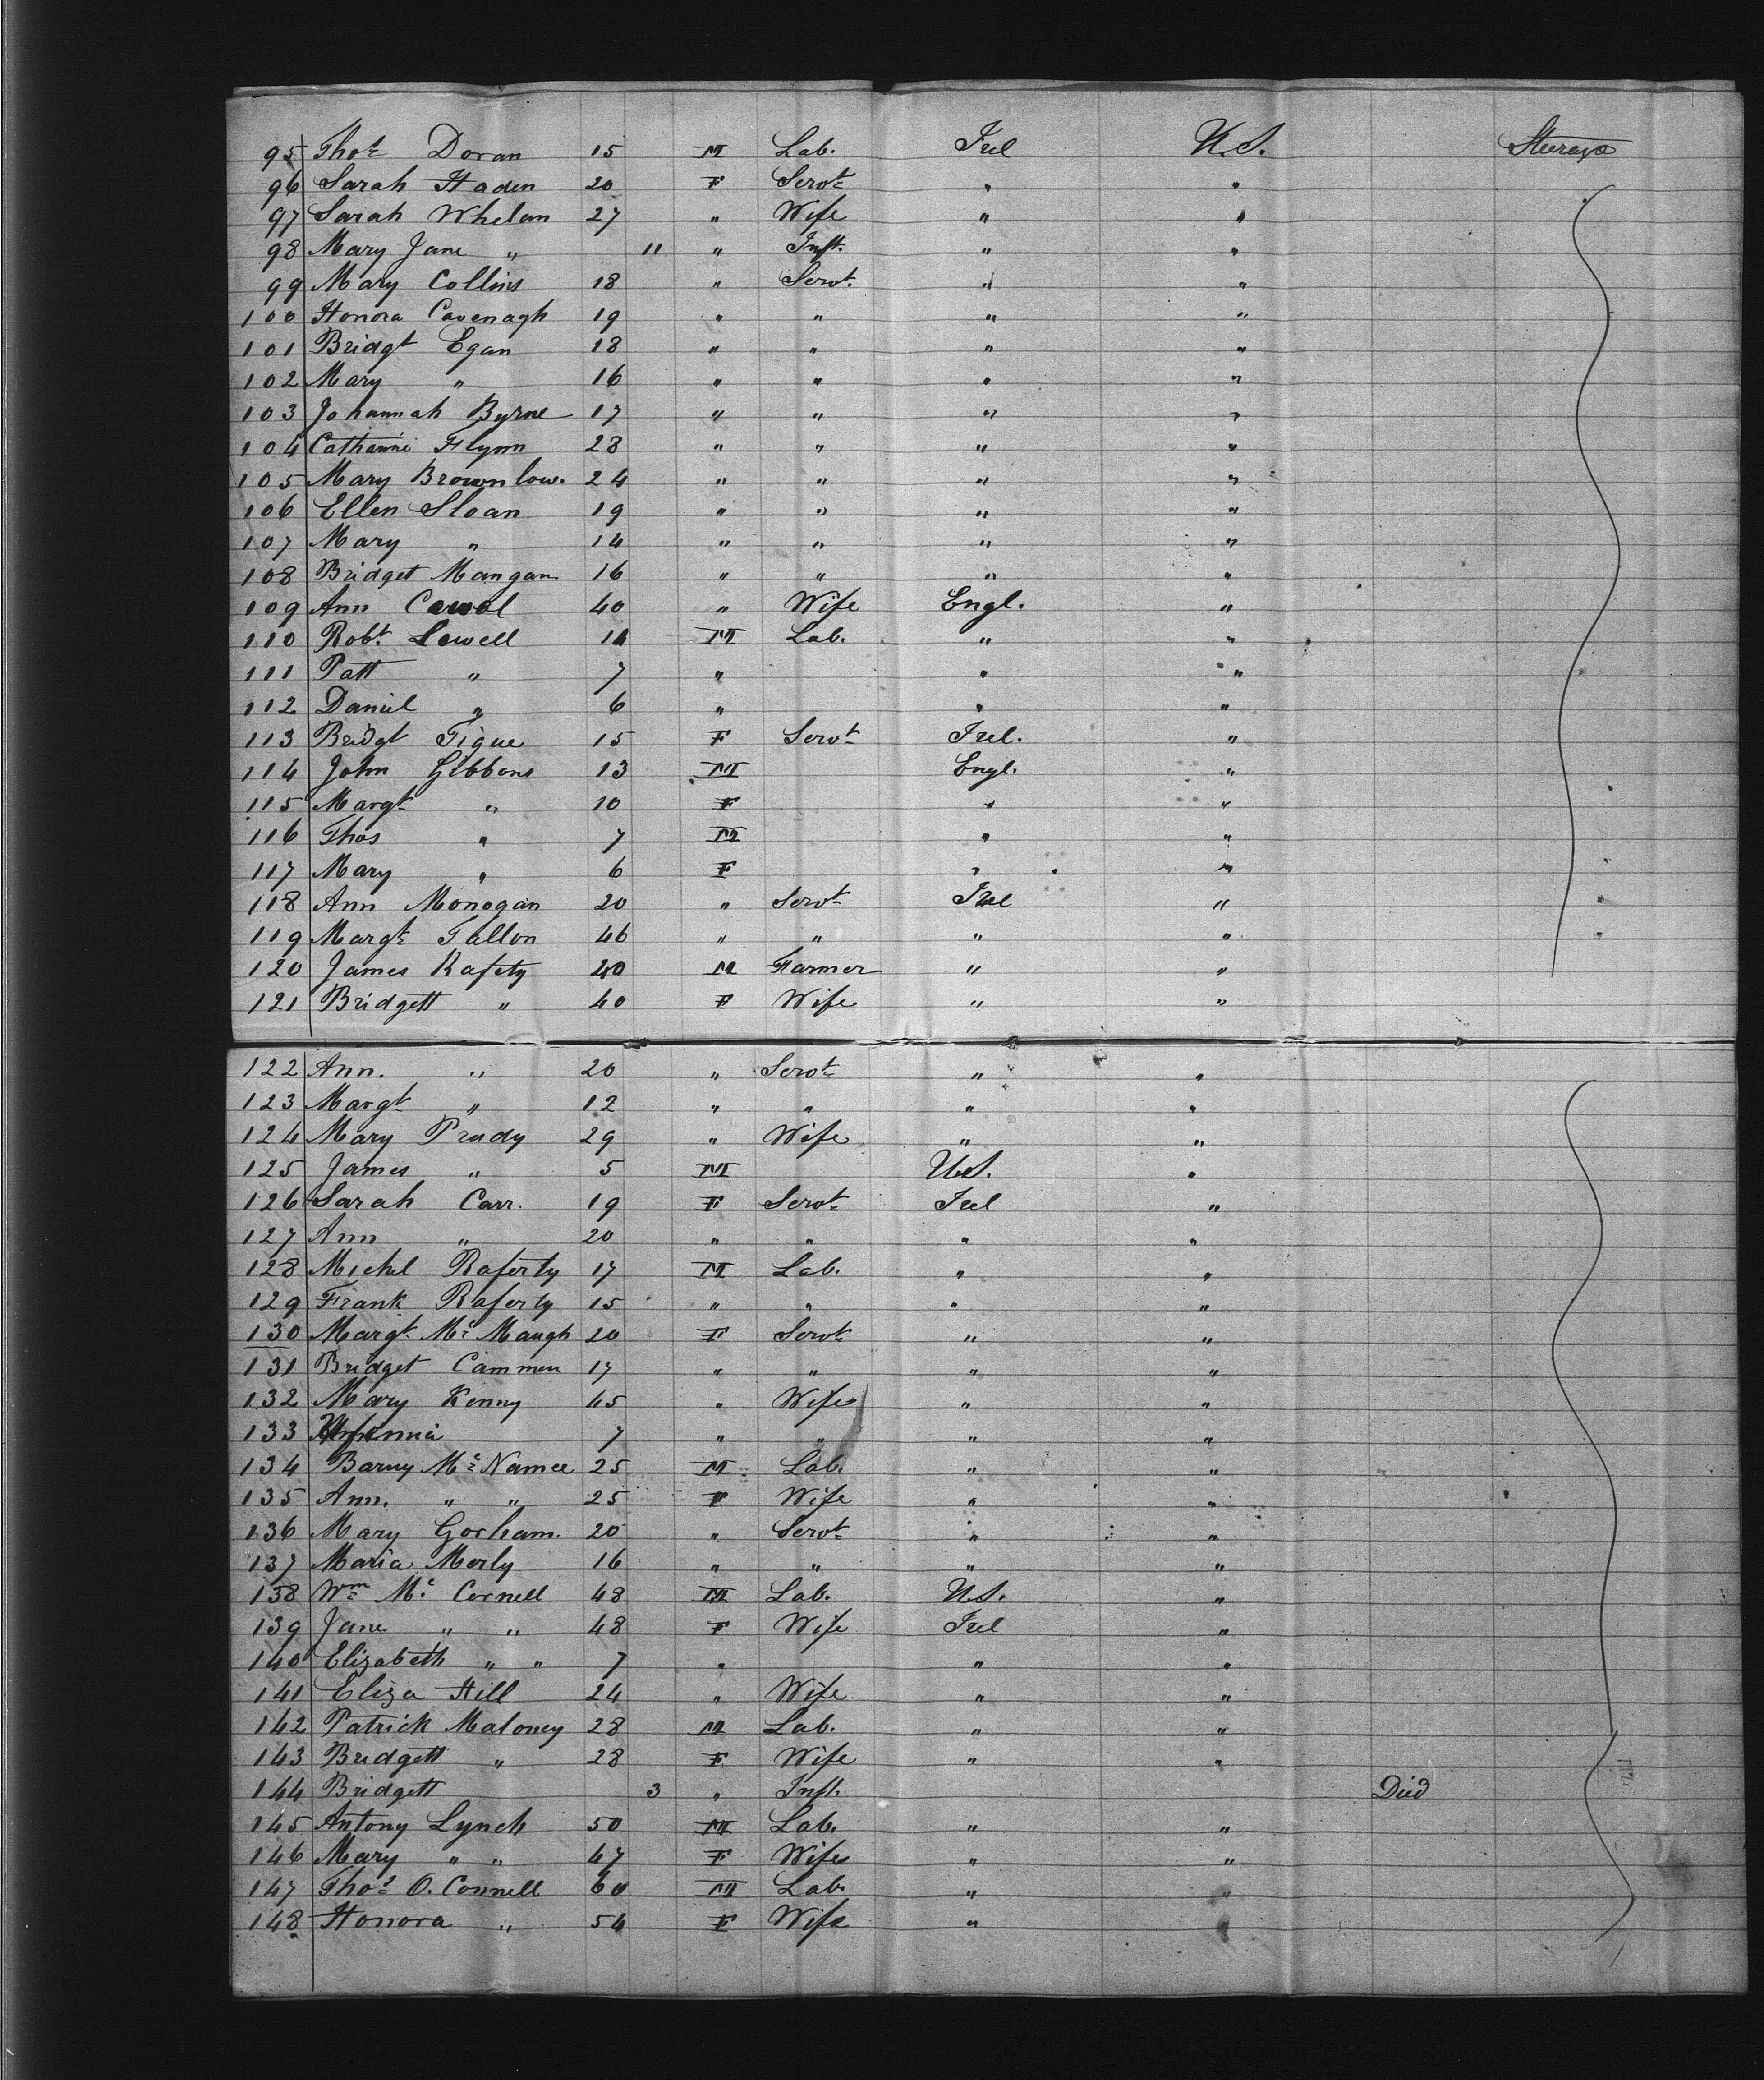 95 Thos Doran 15 M Lab. Irel U.S. Steerage
96 Sarah Haden 20 F Servt " "
97 Sarah Whelan 27 " Wife " "
98 Mary Jane " 11 " Inft. " "
99 Mary Collins 18 " Servt. " "
100 Honora Cavenagh 19 " " " "
101 Bridgt Egan 18 " " " "
102 Mary " 16 " " " "
103 Johannah Byrne 17 " " " "
104 Catharine Flynn 28 " " " "
105 Mary Brownlow. 24 " " " "
106 Ellen Sloan 19 " " " "
107 Mary " 14 " " " "
108 Bridget Mangan 16 " " " "
109 Ann 40 " Wife Engl. "
110 Robt. Lewell 11 M Lab. " "
111 Patt " 7 " " "
112 Daniel " 6 " " "
113 Bridgt Tigue 15 F Servt Irel. "
114 John Gibbons 13 M Engl. "
115 Margt " 10 F " "
116 Thos " 7 M " "
117 Mary " 6 F " "
118 Ann Monogan 20 " Servt Irel "
119 Margt Fallon 46 " " " "
120 James Rafety 40 M Farmer " "
121 Bridgett " 40 F Wife " "
122 Ann. " 20 " Servt " "
123 Margt " 12 " " " "
124 Mary Prudy 29 " Wife " "
125 James " 5 M U.S. "
126 Sarah Carr. 19 F Servt Irel "
127 Ann " 20 " " " "
128 Michel Raferty 17 M Lab. " "
129 Frank Raferty 15 " " " "
130 Margt Mc Maugh 20 F Servt " "
131 Bridget Cammen 17 " " " "
132 Mary Kenny 45 " Wife " "
133 7 " " " "
134 Barny Mc Namee 25 M Lab. " "
135 Ann. " " 25 F Wife " "
136 Mary Gorham. 20 " Servt " "
137 Maria Merly 16 " " " "
138 Wm Mc Cornell 48 M Lab. U.S. "
139 Jane " " 48 F Wife Irel "
140 Elizabeth " " 7 " " "
141 Eliza Hill 24 " Wife " "
142 Patrick Maloney 28 M Lab. " "
143 Bridgett " 28 F Wife " "
144 Bridgett 3 " Inft. Died
145 Antony Lynch 50 M Lab. " "
146 Mary " " 47 F Wife " "
147 Thos O. Connell 60 M Lab. " "
148 Honora " 54 F Wife " "